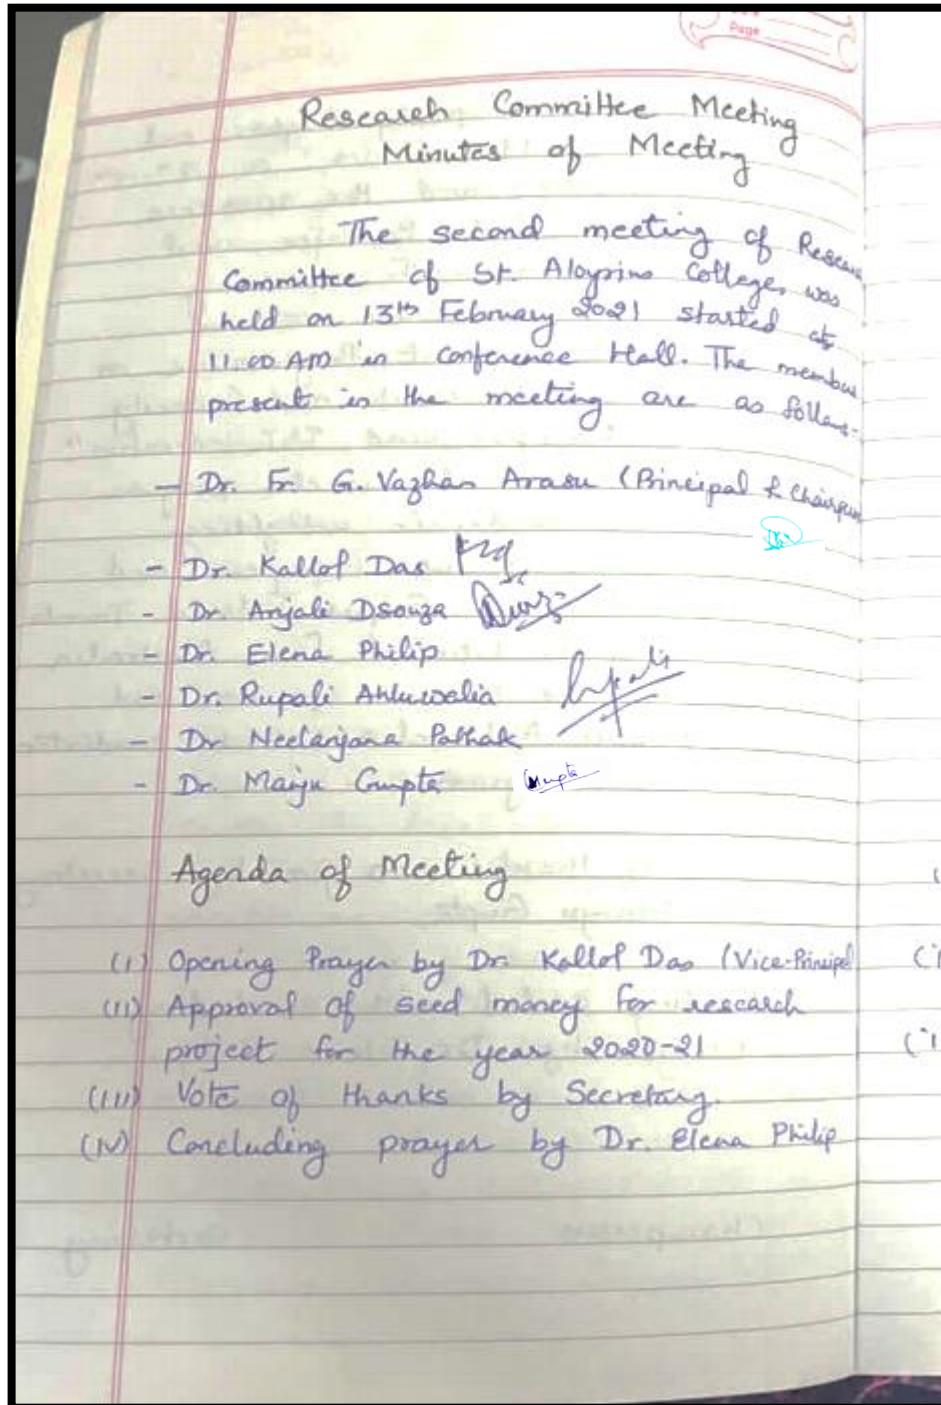 Page
Research Committee Meeting
Minutes of Meeting
The second meeting of Resear
Committee of St. Aloysius College, was
held on 13th February 2021 started at
11.00 AM in Conference Hall. The members
present in the meeting are as follows:-
- Dr. Fr. G. Vazhan Arasu (Principal & Chairperson
- Dr. Kallol Das
- Dr. Anjali Dsouza
- Dr. Elena Philip
- Dr. Rupali Ahluwalia Rupali
- Dr Neelanjana Pathak
- Dr. Manju Gupta Gupta
Agenda of Meeting
(I) Opening Prayer by Dr. Kallol Das (Vice-Principal
(II) Approval of seed money for research
project for the year 2020-21
(III) Vote of thanks by Secretary.
(IV) Concluding prayer by Dr. Elena Philip